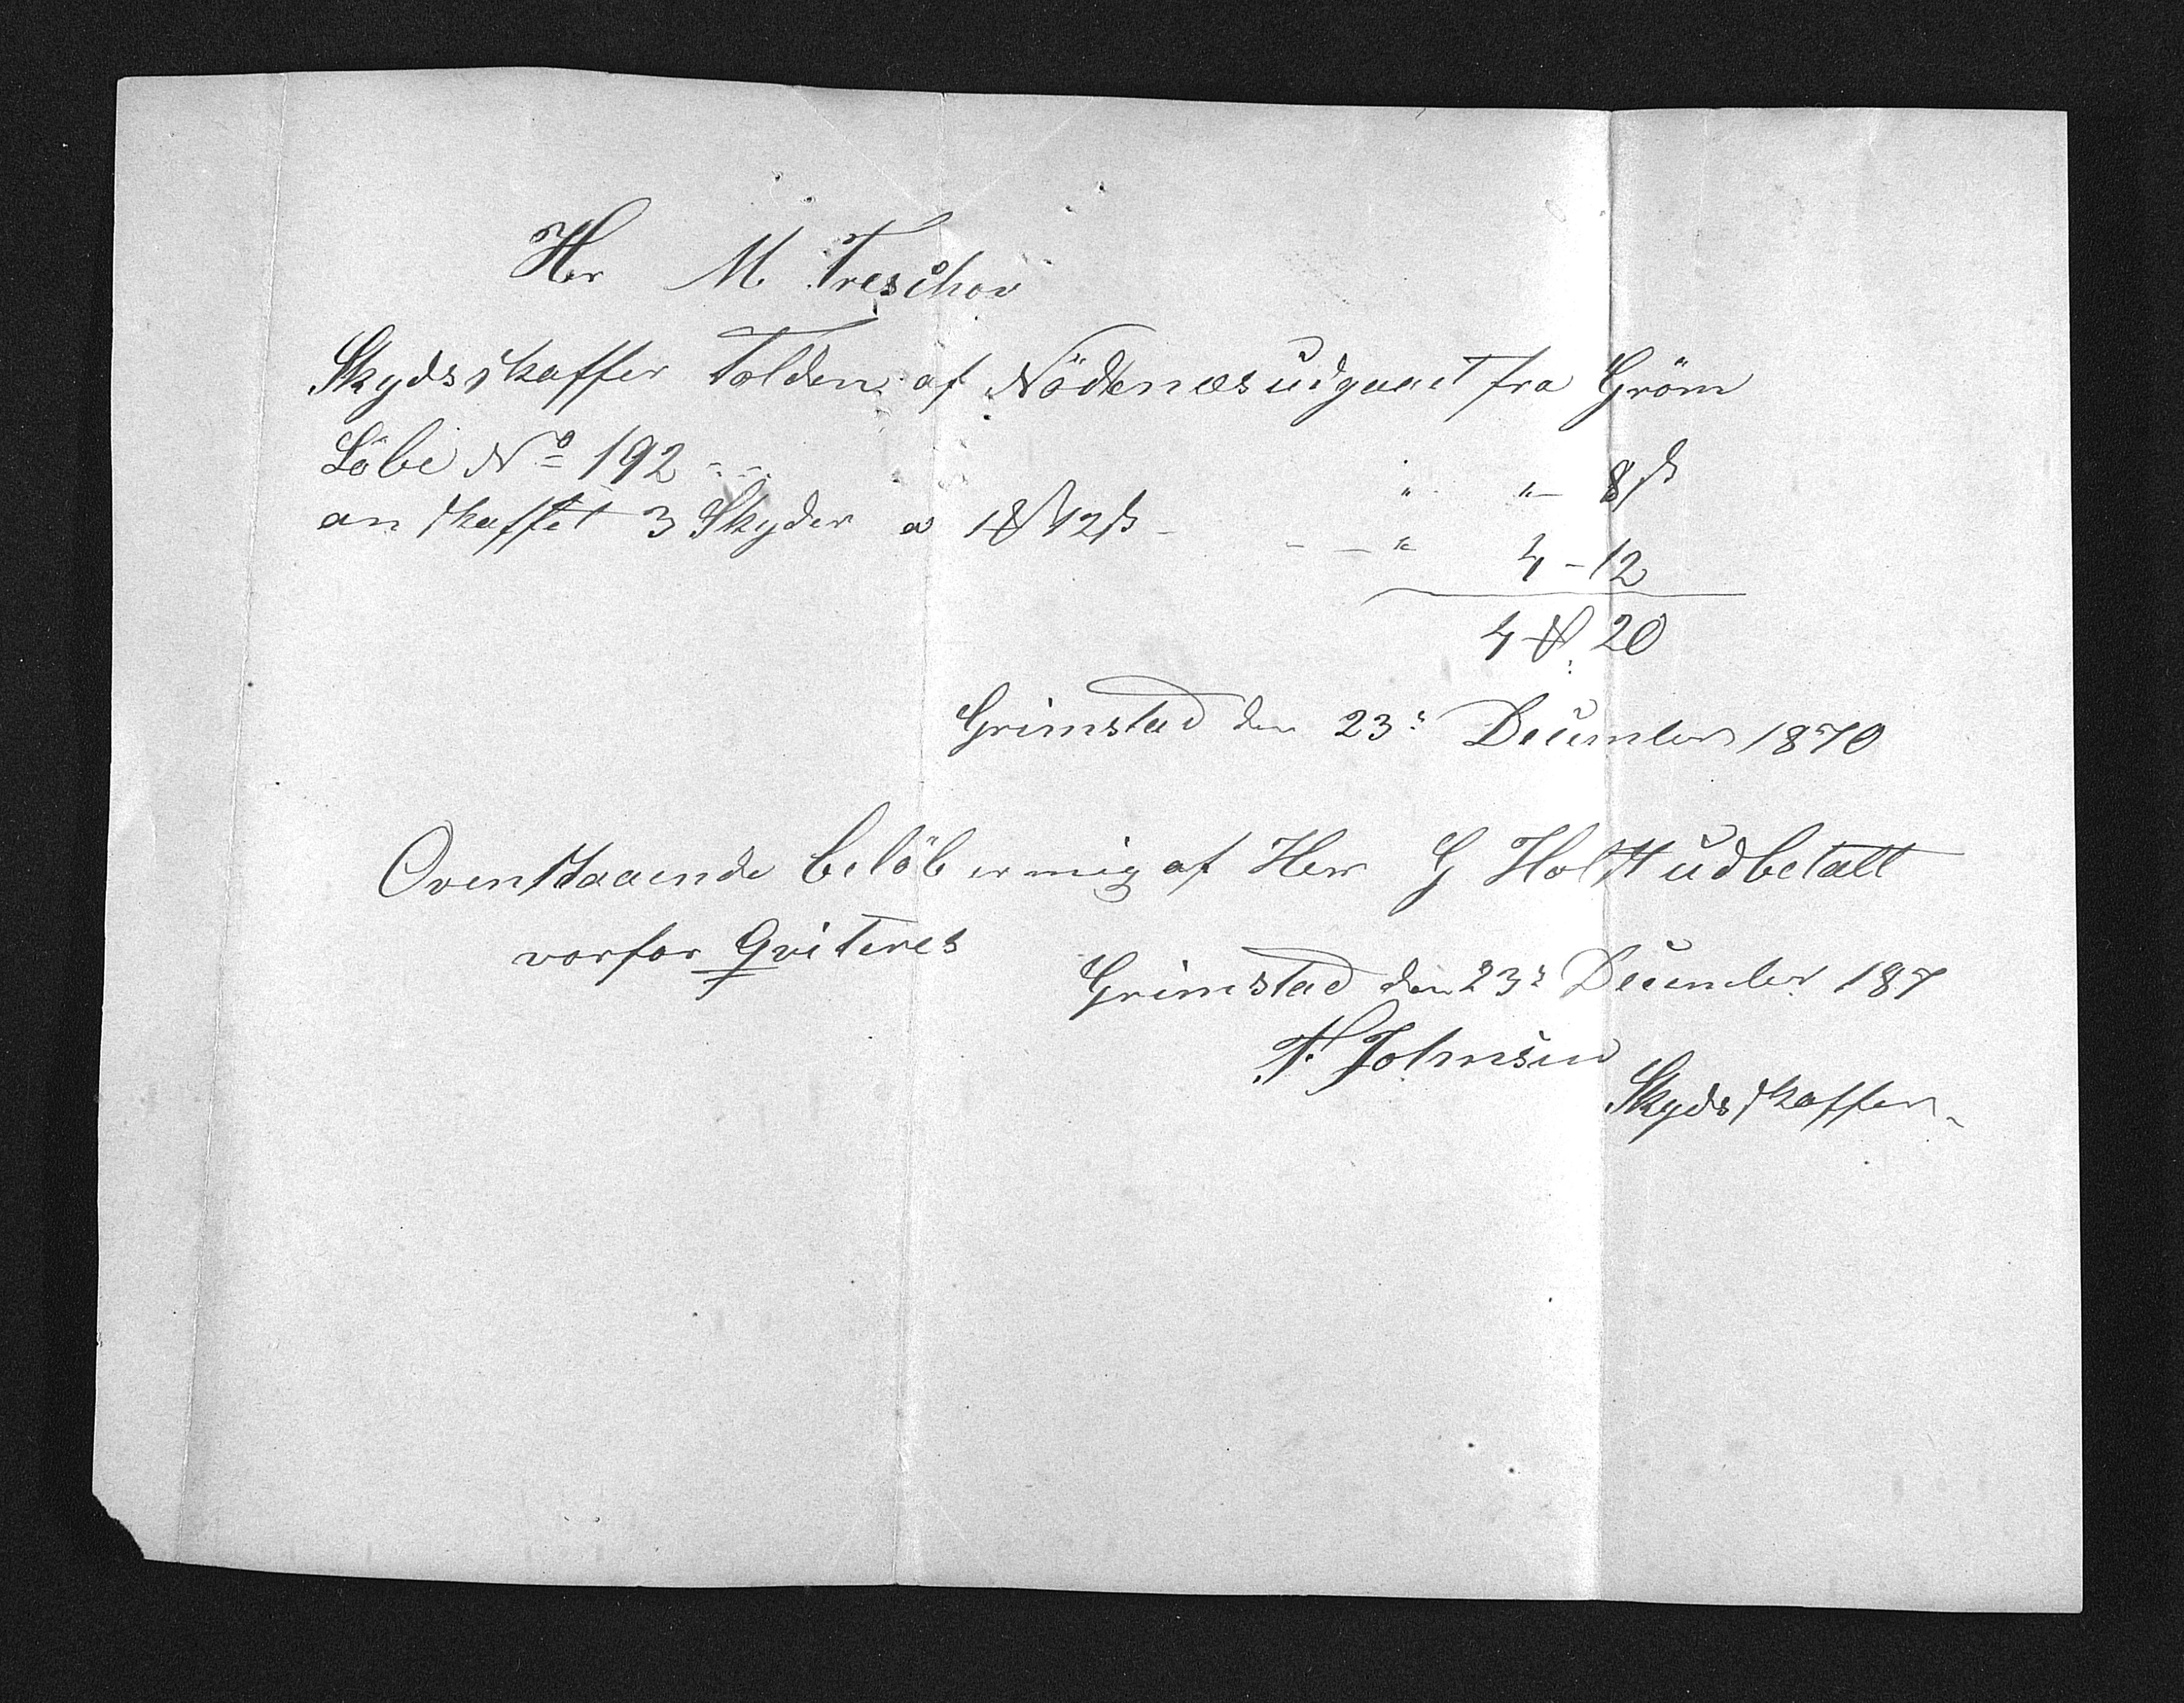 Her M. Treschov
Skydsskaffer Tolden af Nödenæs udgaaet fra Gröm
Löbe No 192 - - " "– 8 ß
an skaffet 3 Skyder a 1 ₰ 12 ß - - – " 4 – 12
4 ₰ 20
Grimstad den 23: December 1870
Ovenstaaende belöb er mig af Herr G Holst udbetalt
vorfor Qviteres
Grimstad den 23: December 187
Johnsen
Skydsskaffer.